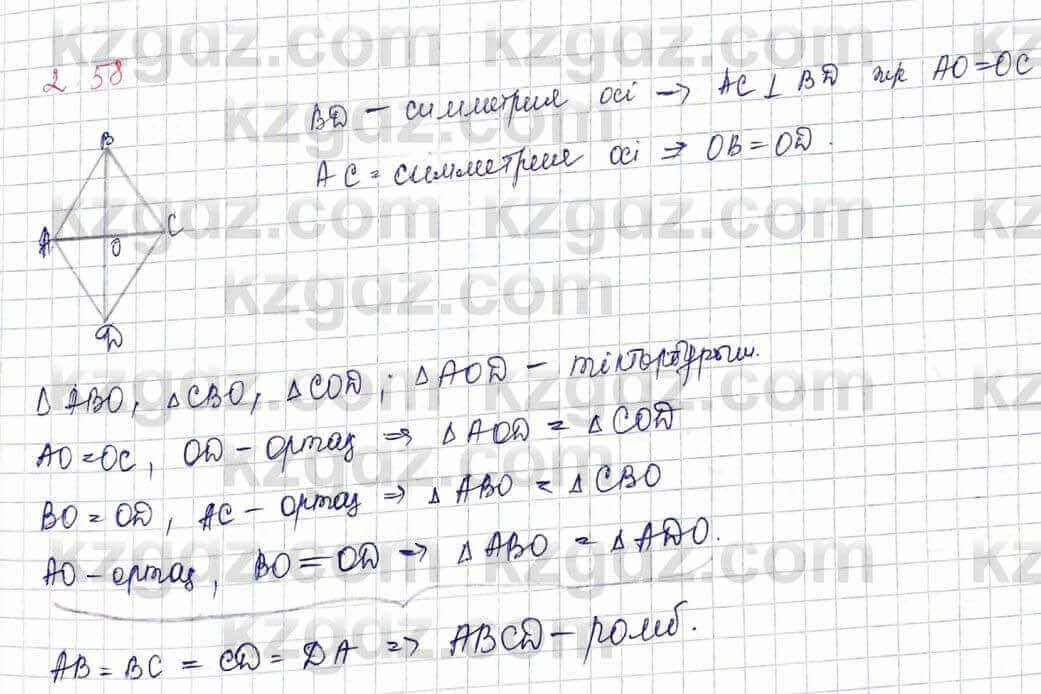 2.58
BD – симметрия осі → AC ⊥ BD жә AO = OC
AC = симметрия осі ⇒ OB = OD.
B
A
O
C
D
△ ABO, △ CBO, △ COD; △ AOD – тікбұрыш.
AO = OC, OD – ортақ ⇒ △ AOD = △ COD
BO = OD, AC – ортақ ⇒ △ ABO = △ CBO
AO – ортақ, BO = OD → △ ABO = △ ADO.
AB = BC = CD = DA ⇒ ABCD – ромб.
kzgdz.com